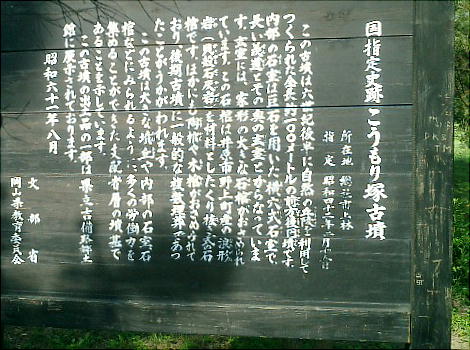 国指定史跡 こうもり塚古墳
所在地 総社市上林
指定 昭和四十三年二月十五日
この古墳は六世紀後半に自然の丘を利用して
つくられた全長約一〇〇メートルの前方後円墳です。
内部の石室は巨石を用いた横穴式石室で、
長い羨道とその奥の玄室とからなっていま
す。玄室には、家形の大きな石棺がおさめられ
ています。この石棺は井原市野上町産の浪形
岩(貝殻石灰岩)を材料としたくり抜き式石
棺です。ほかにも陶棺や木棺がおさめられて
おり、後期古墳に一般的な複数埋葬であっ
たことがうかがわれます。
この古墳は大きな墳丘や内部の石室石
棺などにみられるように、多くの労働力を
集めることができた支配者層の墳墓で
あることを示しています。
この古墳の出土品の一部は県立吉備路郷土
館に展示されております。
昭和六十一年八月
文部省
岡山県教育委員会